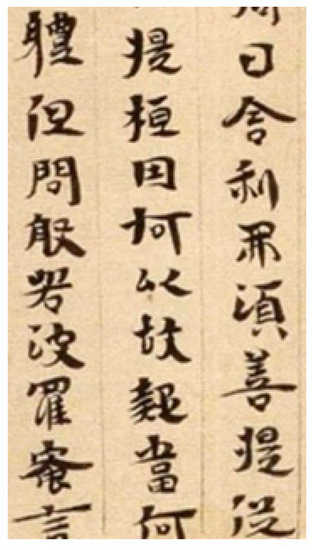 曰舍利弗須菩提從
提桓因何以故當何
體但問般若波羅蜜言